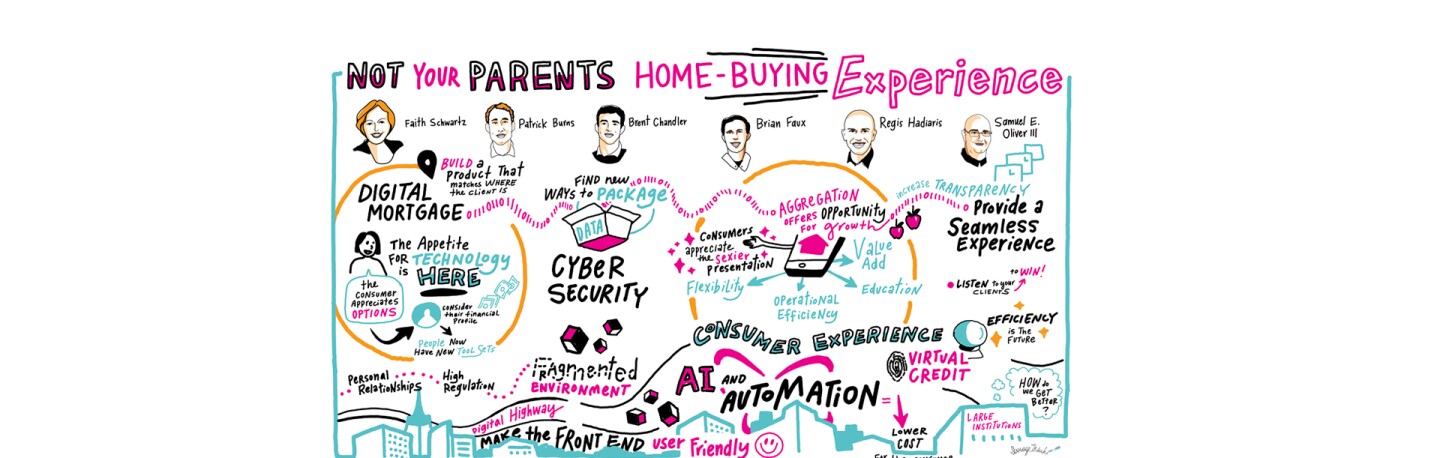 NOT YOUR PARENTS HOME-BUYING Experience
Faith Schwartz
Patrick Burns
Brent Chandler
Brian Faux
Regis Hadiaris
Samuel E.
Oliver III
DIGITAL
MORTGAGE
BUILD a
Product That
matches WHERE
the client is
The Appetite
FOR TECHNOLOGY
is HERE
the
CONSUMER
Appreciates
OPTIONS
consider
their financial
Profile
People Now
Have New TOOL SETS
Personal
Relationships
High
Regulation
FIND new
WAYS to PACKAGE
DATA
CYBER
SECURITY
FRAgmented
ENVIRONMENT
Digital Highway
MAKE the FRONT END user Friendly
AGGREGATION
OFFERS OPPORTUNITY
FOR growth
CONSUMERS
appreciate
the sexier
presentation
Value
Add
Flexibility
Operational
Efficiency
Education
CONSUMER EXPERIENCE
AI AND AUTOMATION =
LOWER
COST
VIRTUAL
CREDIT
increase TRANSPARENCY
Provide a
Seamless
Experience
LISTEN to your
CLIENTS
to WIN!
EFFICIENCY
is The
FUTURE
HOW do
we GET
Better
?
LARGE
INSTITUTIONS